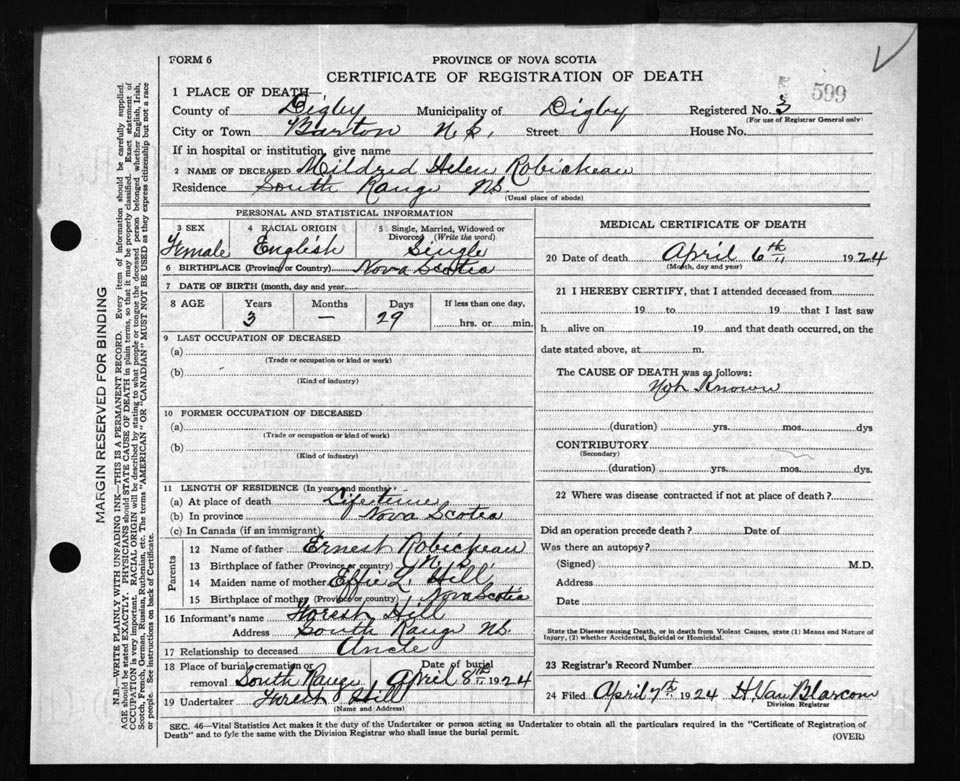 FORM 6
PROVINCE OF NOVA SCOTIA
CERTIFICATE OF REGISTRATION OF DEATH
599
1 PLACE OF DEATH—
County of Digby Municipality of Digby Registered No. 3
(For use of Registrar General only)
City or Town Barton N.S. Street House No.
If in hospital or institution, give name
2 NAME OF DECEASED Mildred Helen Robicheau
Residence South Range NS.
(Usual place of abode)
PERSONAL AND STATISTICAL INFORMATION
3 SEX 4 RACIAL ORIGIN 5 Single, Married, Widowed or Divorced (Write the word)
Female English Single
6 BIRTHPLACE (Province or Country) Nova Scotia
7 DATE OF BIRTH (month, day and year)
8 AGE Years Months Days If less than one day,
3 — 29 hrs. or min.
9 LAST OCCUPATION OF DECEASED
(a)
(Trade or occupation or kind or work)
(b)
(Kind of industry)
10 FORMER OCCUPATION OF DECEASED
(a)
(Trade or occupation or kind of work)
(b)
(Kind of industry)
11 LENGTH OF RESIDENCE (In years and months)
(a) At place of death Lifetime
(b) In province Nova Scotia
(c) In Canada (if an immigrant)
Parents
12 Name of father Ernest Robicheau
13 Birthplace of father (Province or country) N.S.
14 Maiden name of mother Effie L. Hill
15 Birthplace of mother (Province or country) Nova Scotia
16 Informant's name Forest Hill
Address South Range NS.
17 Relationship to deceased Uncle
18 Place of burial, cremation or removal South Range Date of burial April 8th 1924
19 Undertaker Forest Hill
(Name and Address)
MEDICAL CERTIFICATE OF DEATH
20 Date of death April 6th 1924
(Month, day and year)
21 I HEREBY CERTIFY, that I attended deceased from
19 to 19 that I last saw
h alive on 19 and that death occurred, on the
date stated above, at m.
The CAUSE OF DEATH was as follows:
Not Known
(duration) yrs. mos. dys
CONTRIBUTORY
(Secondary)
(duration) yrs. mos. dys.
22 Where was disease contracted if not at place of death?
Did an operation precede death? Date of
Was there an autopsy?
(Signed) M.D.
Address
Date
State the Disease causing Death, or in death from Violent Causes, state (1) Means and Nature of
Injury, (2) whether Accidental, Suicidal or Homicidal.
23 Registrar's Record Number
24 Filed April 7th 1924 H Van Blarcom
Division Registrar
SEC. 46—Vital Statistics Act makes it the duty of the Undertaker or person acting as Undertaker to obtain all the particulars required in the "Certificate of Registration of
Death" and to fyle the same with the Division Registrar who shall issue the burial permit.
(OVER)
MARGIN RESERVED FOR BINDING
N.B.—WRITE PLAINLY WITH UNFADING INK—THIS IS A PERMANENT RECORD. Every item of information should be carefully supplied.
AGE should be stated EXACTLY. PHYSICIANS should STATE CAUSE OF DEATH in plain terms, so that it may be properly classified. Exact statement of
OCCUPATION is very important. RACIAL ORIGIN will be described by stating to what people or tongue the deceased person belonged whether English, Irish,
Scotch, French, German, Russian, Ruthenian, etc. The terms "AMERICAN" OR "CANADIAN" MUST NOT BE USED as they express citizenship but not a race
or people. See instructions on back of Certificate.